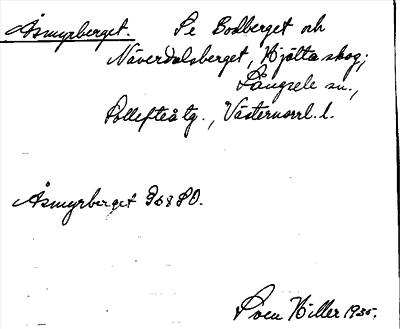 Åsmyrberget. Se Bodberget och
Näverdalsberget, Hjälta skog;
Långsele sn.,
Sollefteå tg., Västernorrl. l.
Åsmyrberget 968 SO.
Sven Hiller 1935.